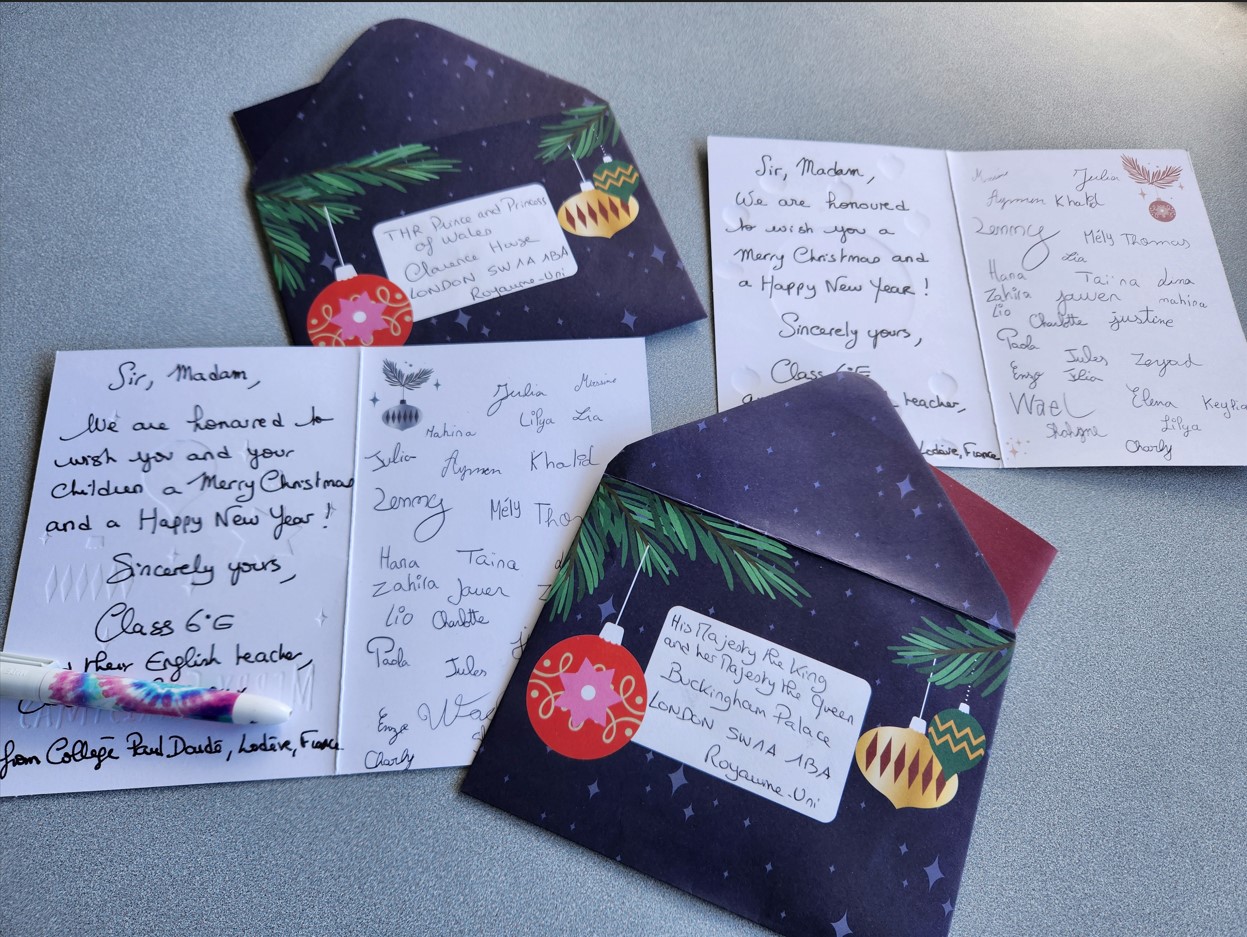 THR Prince and Princess
of Wales
Clarence House
LONDON SW1A 1BA
Royaume-Uni
Sir, Madam,
We are honoured
to wish you a
Merry Christmas and
a Happy New Year !
Sincerely yours,
Class 6°E
teacher,
Lodève, France
Julia
Aymen Khalid
Zemmy
Mély Thomas
Lia
Hana Taïna dina
Zahira Jawen mahina
Lio Charlotte justine
Paola
Jules Zeyad
Enzo Ilia
Wael Elena Keylia
Lilya
Charly
Sir, Madam,
We are honoured to
wish you and your
children a Merry Christmas
and a Happy New Year !
Sincerely yours,
Class 6°E
their English teacher,
from Collège Paul Dardé, Lodève, France
Julia
Mahina Lilya Lia
Julia Aymen Khalid
Zemmy Mély
Hana Taïna
Zahira Jawen
Lio Charlotte
Paola Jules
Enzo
Charly
His Majesty the King
and her Majesty the Queen
Buckingham Palace
LONDON SW1A 1BA
Royaume-Uni